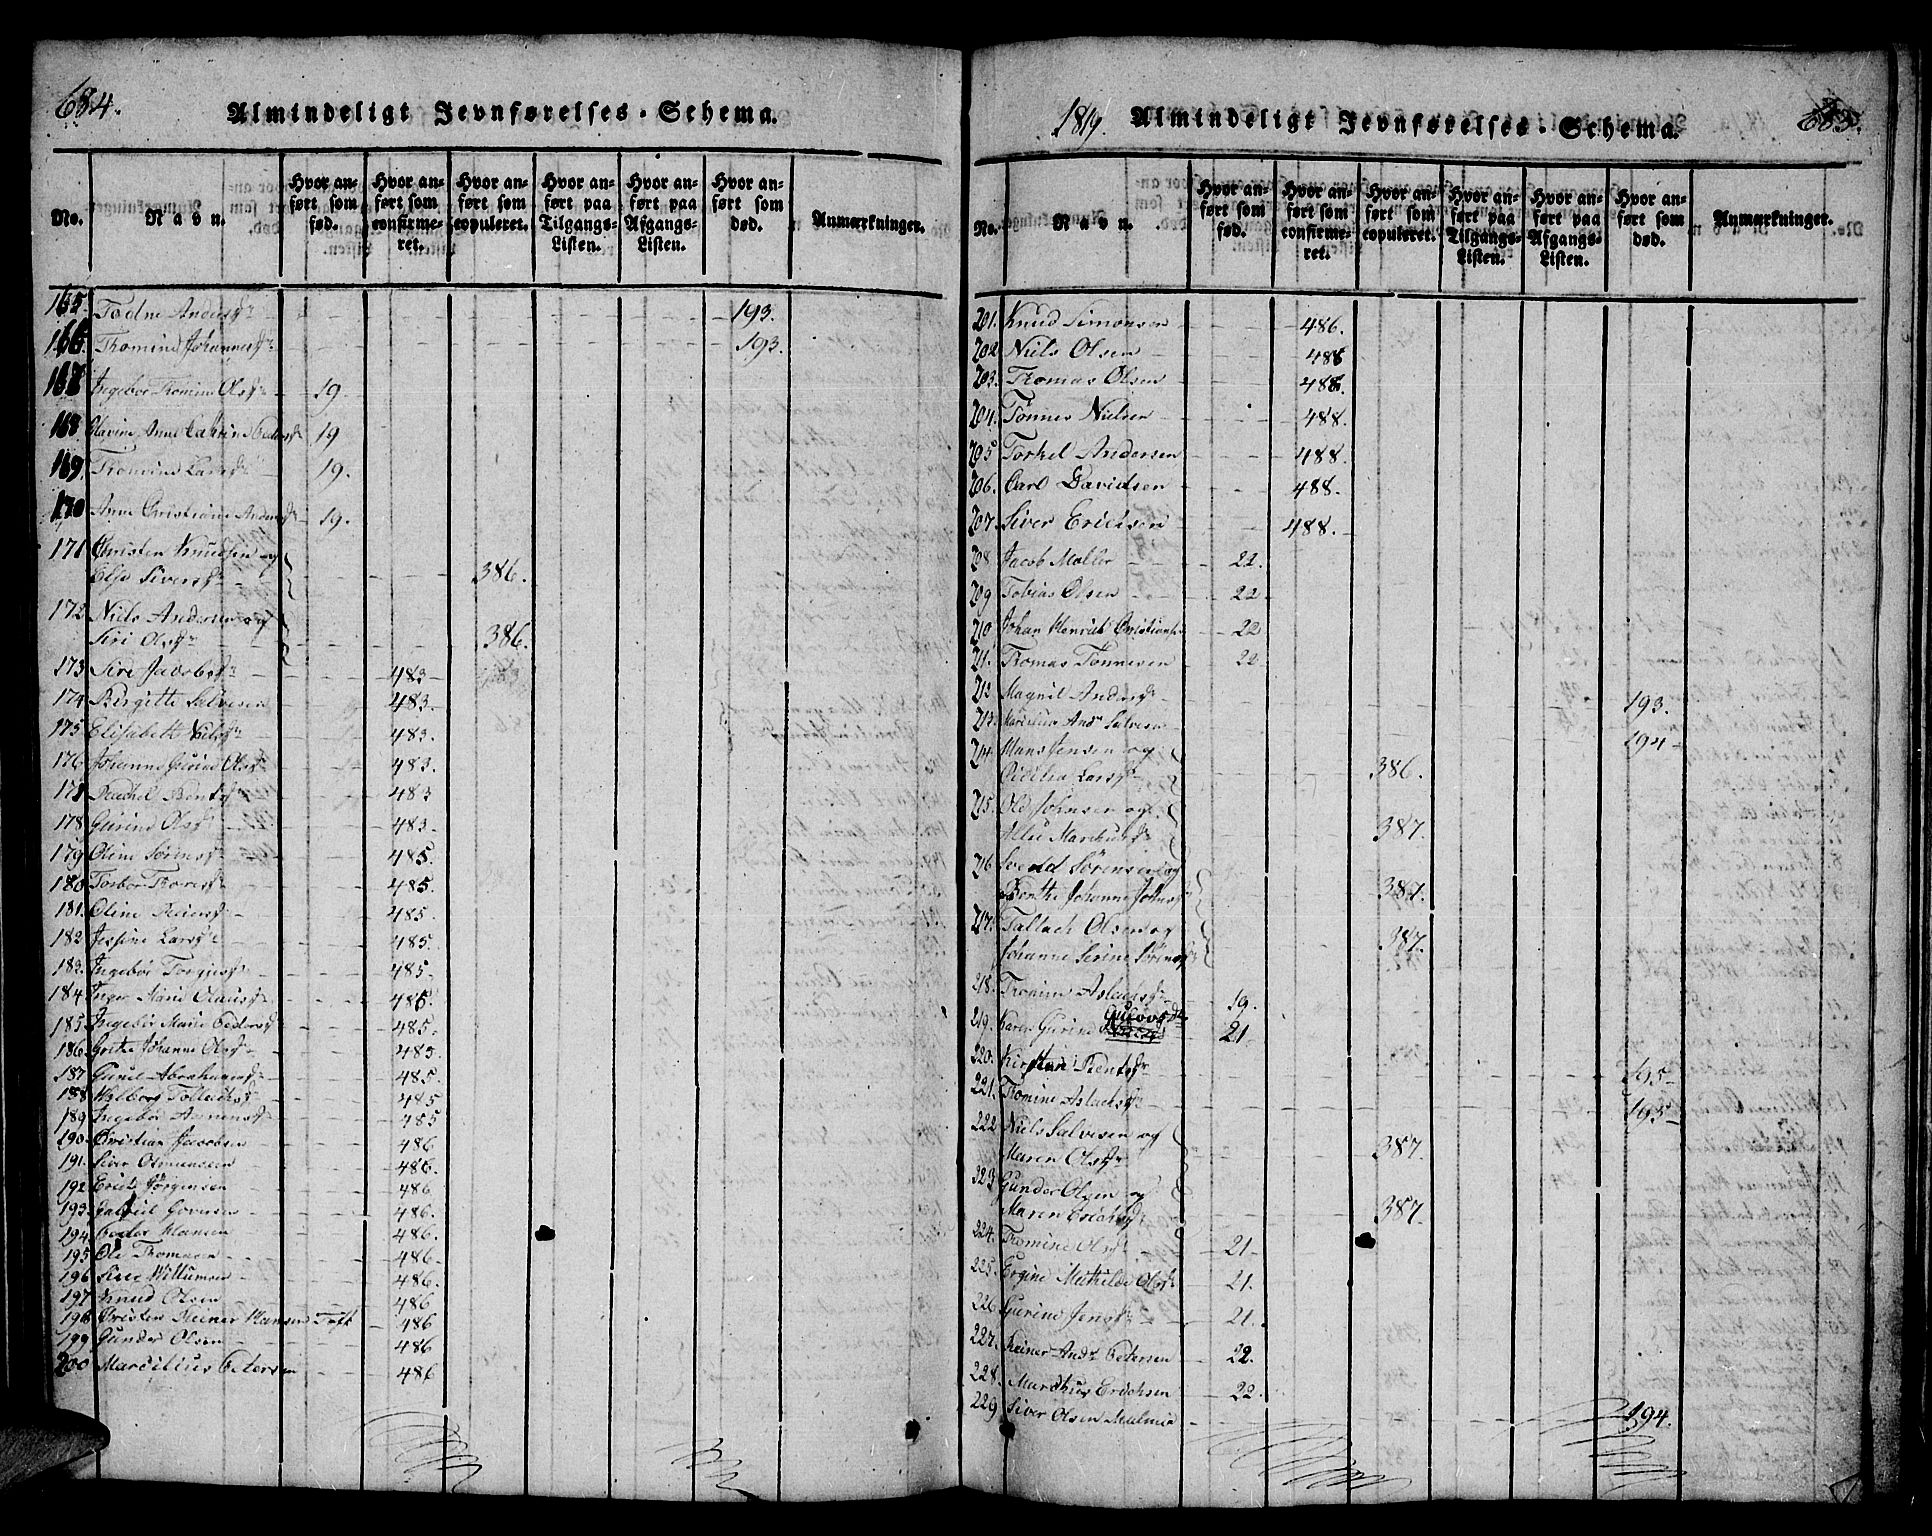 684.
Almindeligt Jevnførelses-Schema.
No. Navn. Hvor anført som fød. Hvor anført som confirmeret. Hvor anført som copuleret. Hvor anført paa Tilgangs-Listen. Hvor anført paa Afgangs-Listen. Hvor anført som død. Anmærkninger.
165 Todne Andersd 193.
166 Tromine Johannesd 193.
167 Ingebor Tromine Olsd 19.
168 Olavine Anne Catrine Pedersd 19
169 Tromine Larsd 19.
170 Anne Christiane Andersd 19.
171 Christen Knudsen og
Else Siversd 386.
172 Niels Andersen og
Siri Olsd 386.
173 Siri Jacobsd 483
174 Birgitte Salvesen 483.
175 Elisabeth Nielsd 483.
176 Johanne Olsd 483.
178 Rachel Bentsd 483
178 Gurine Olsd 483.
179 Oline Sørensd 485.
180 Torbor Thoresd 485.
181. Oline Reiersd 485.
182 Jessine Larsd 485.
183. Ingebor Torgiersd 485.
184 Inger Marie Olausd 485.
185 Ingebor Marie Pedersd 485.
186. Grethe Johanne Olsd 485.
187 Gunil Abrahamsd 485.
188 Wolborg Tollachsd 485
189 Ingebor Aanensd 485
190. Christian Jacobsen 486
191. Siver Osmunsen 486.
192 Erich Jørgensen 486
193. Gabriel Goversen 486.
194. Peder Hansen 486.
195 Ole Thomasen 486.
196 Siver Willumsen 486.
197 Knud Olsen 486
198 Christen Heiner Hansen Toft 486
199 Gunder Olsen 486
200 Marcilius Pedersen 486
1819. Almindeligt Jevnførelses-Schema. 685.
No. Navn. Hvor anført som fød. Hvor anført som confirmeret. Hvor anført som copuleret. Hvor anført paa Tilgangs-Listen. Hvor anført paa Afgangs-Listen. Hvor anført som død. Anmærkninger.
201. Knud Simonsen 486.
202 Niels Olsen 488
203. Thomas Olsen 488.
204. Tønnes Nielsen 488.
205 Torkel Andersen 488.
206. Carl Davidsen 488.
207. Siver Ericksen 488.
208. Jacob Møller 22.
209 Tobias Olsen 22
210 Johan Henrich Christians 22
211. Thomas Tønnesen 22
212 Magnil Andersd 193.
213. Marcelius Andr Salvesen 194
214 Hans Jensen og
Cicilia Larsd 386.
215. Ole Johnsen og
Marckusd 387.
216 Svend Sørensen og
Berthe Johanne Johnsd 387.
217. Tallach Olsen og 387.
Johanne Serine Sørensd
218. Tromine Aslachsd 19.
219. Karen Gurine Guttormsd 21.
220. Kirstine Bentsd 195
221. Tromine Aslachsd 195
222 Niels Salvesen og
Maren Olsd 387.
223 Gunder Olsen og
Maren Erichsd 387.
224. Tromine Olsd 21
225. Ergine Mathilde Olsd 21.
226. Gurine Jensd 21.
227. Reiner Andr Pedersen 22.
228. Marckus Erichsen 22.
229 Siver Olsen 194.